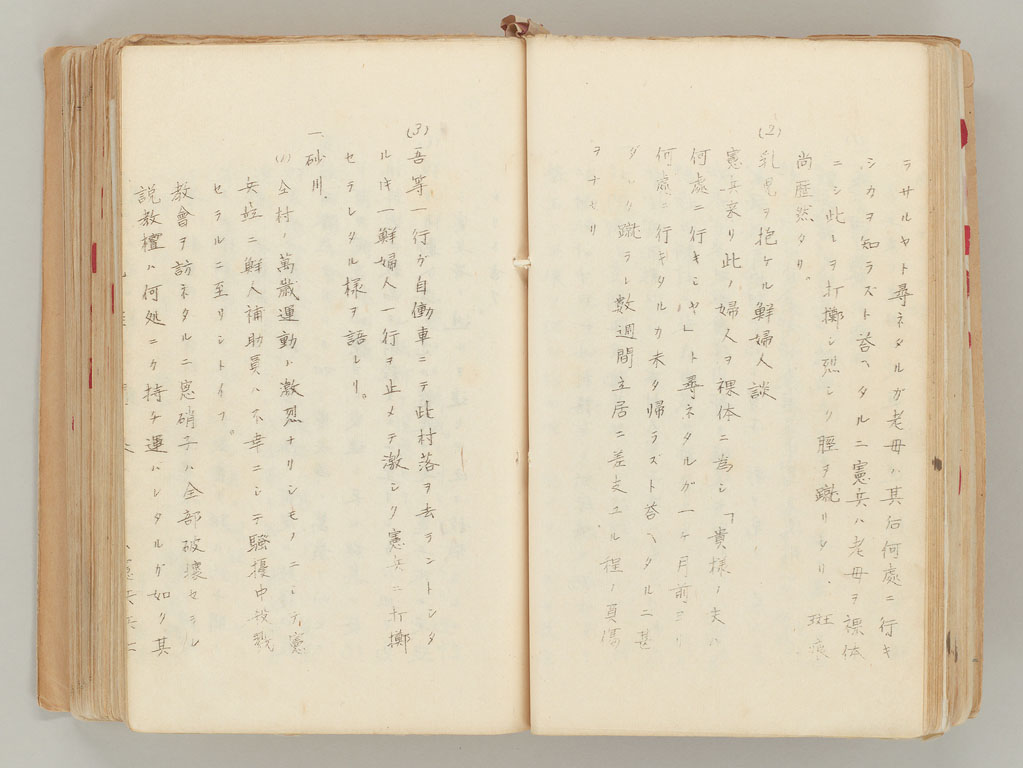 ラサルヤト尋ネタルガ老母ハ其后何處ニ行キ
シカヲ知ラズト荅ヘタルニ憲兵ハ老母ヲ裸体
ニシ此レヲ打擲シ烈シク脛ヲ蹴リタリ、斑痕
尚歴然タリ。
(2)乳児ヲ抱ケル鮮婦人談
憲兵来リ此ノ婦人ヲ裸体ニ為シ「貴様ノ夫ハ
何處ニ行キシヤ」ト尋ネタルガ一ヶ月前ヨリ
何處ニ行キタルカ未タ帰ラズト荅ヘタルニ甚
ダシク蹴ラレ数週間立居ニ差支ユル程ノ負傷
ヲナセリ
(3)吾等一行ガ自働車ニテ此村落ヲ去ラントシタ
ル時一鮮婦人一行ヲ止メテ激シク憲兵ニ打擲
セラレタル様ヲ語レリ。
一、砂川.
(1)仝村ノ萬歳運動ハ激烈ナリシモノニシテ憲
兵並ニ鮮人補助員ハ不幸ニシテ騒擾中投戮
セラルニ至リシトイフ。
教會ヲ訪ネタルニ窓硝子ハ全部破壊セラレ
説教檀ハ何処ニカ持チ運バレタルガ如ク其